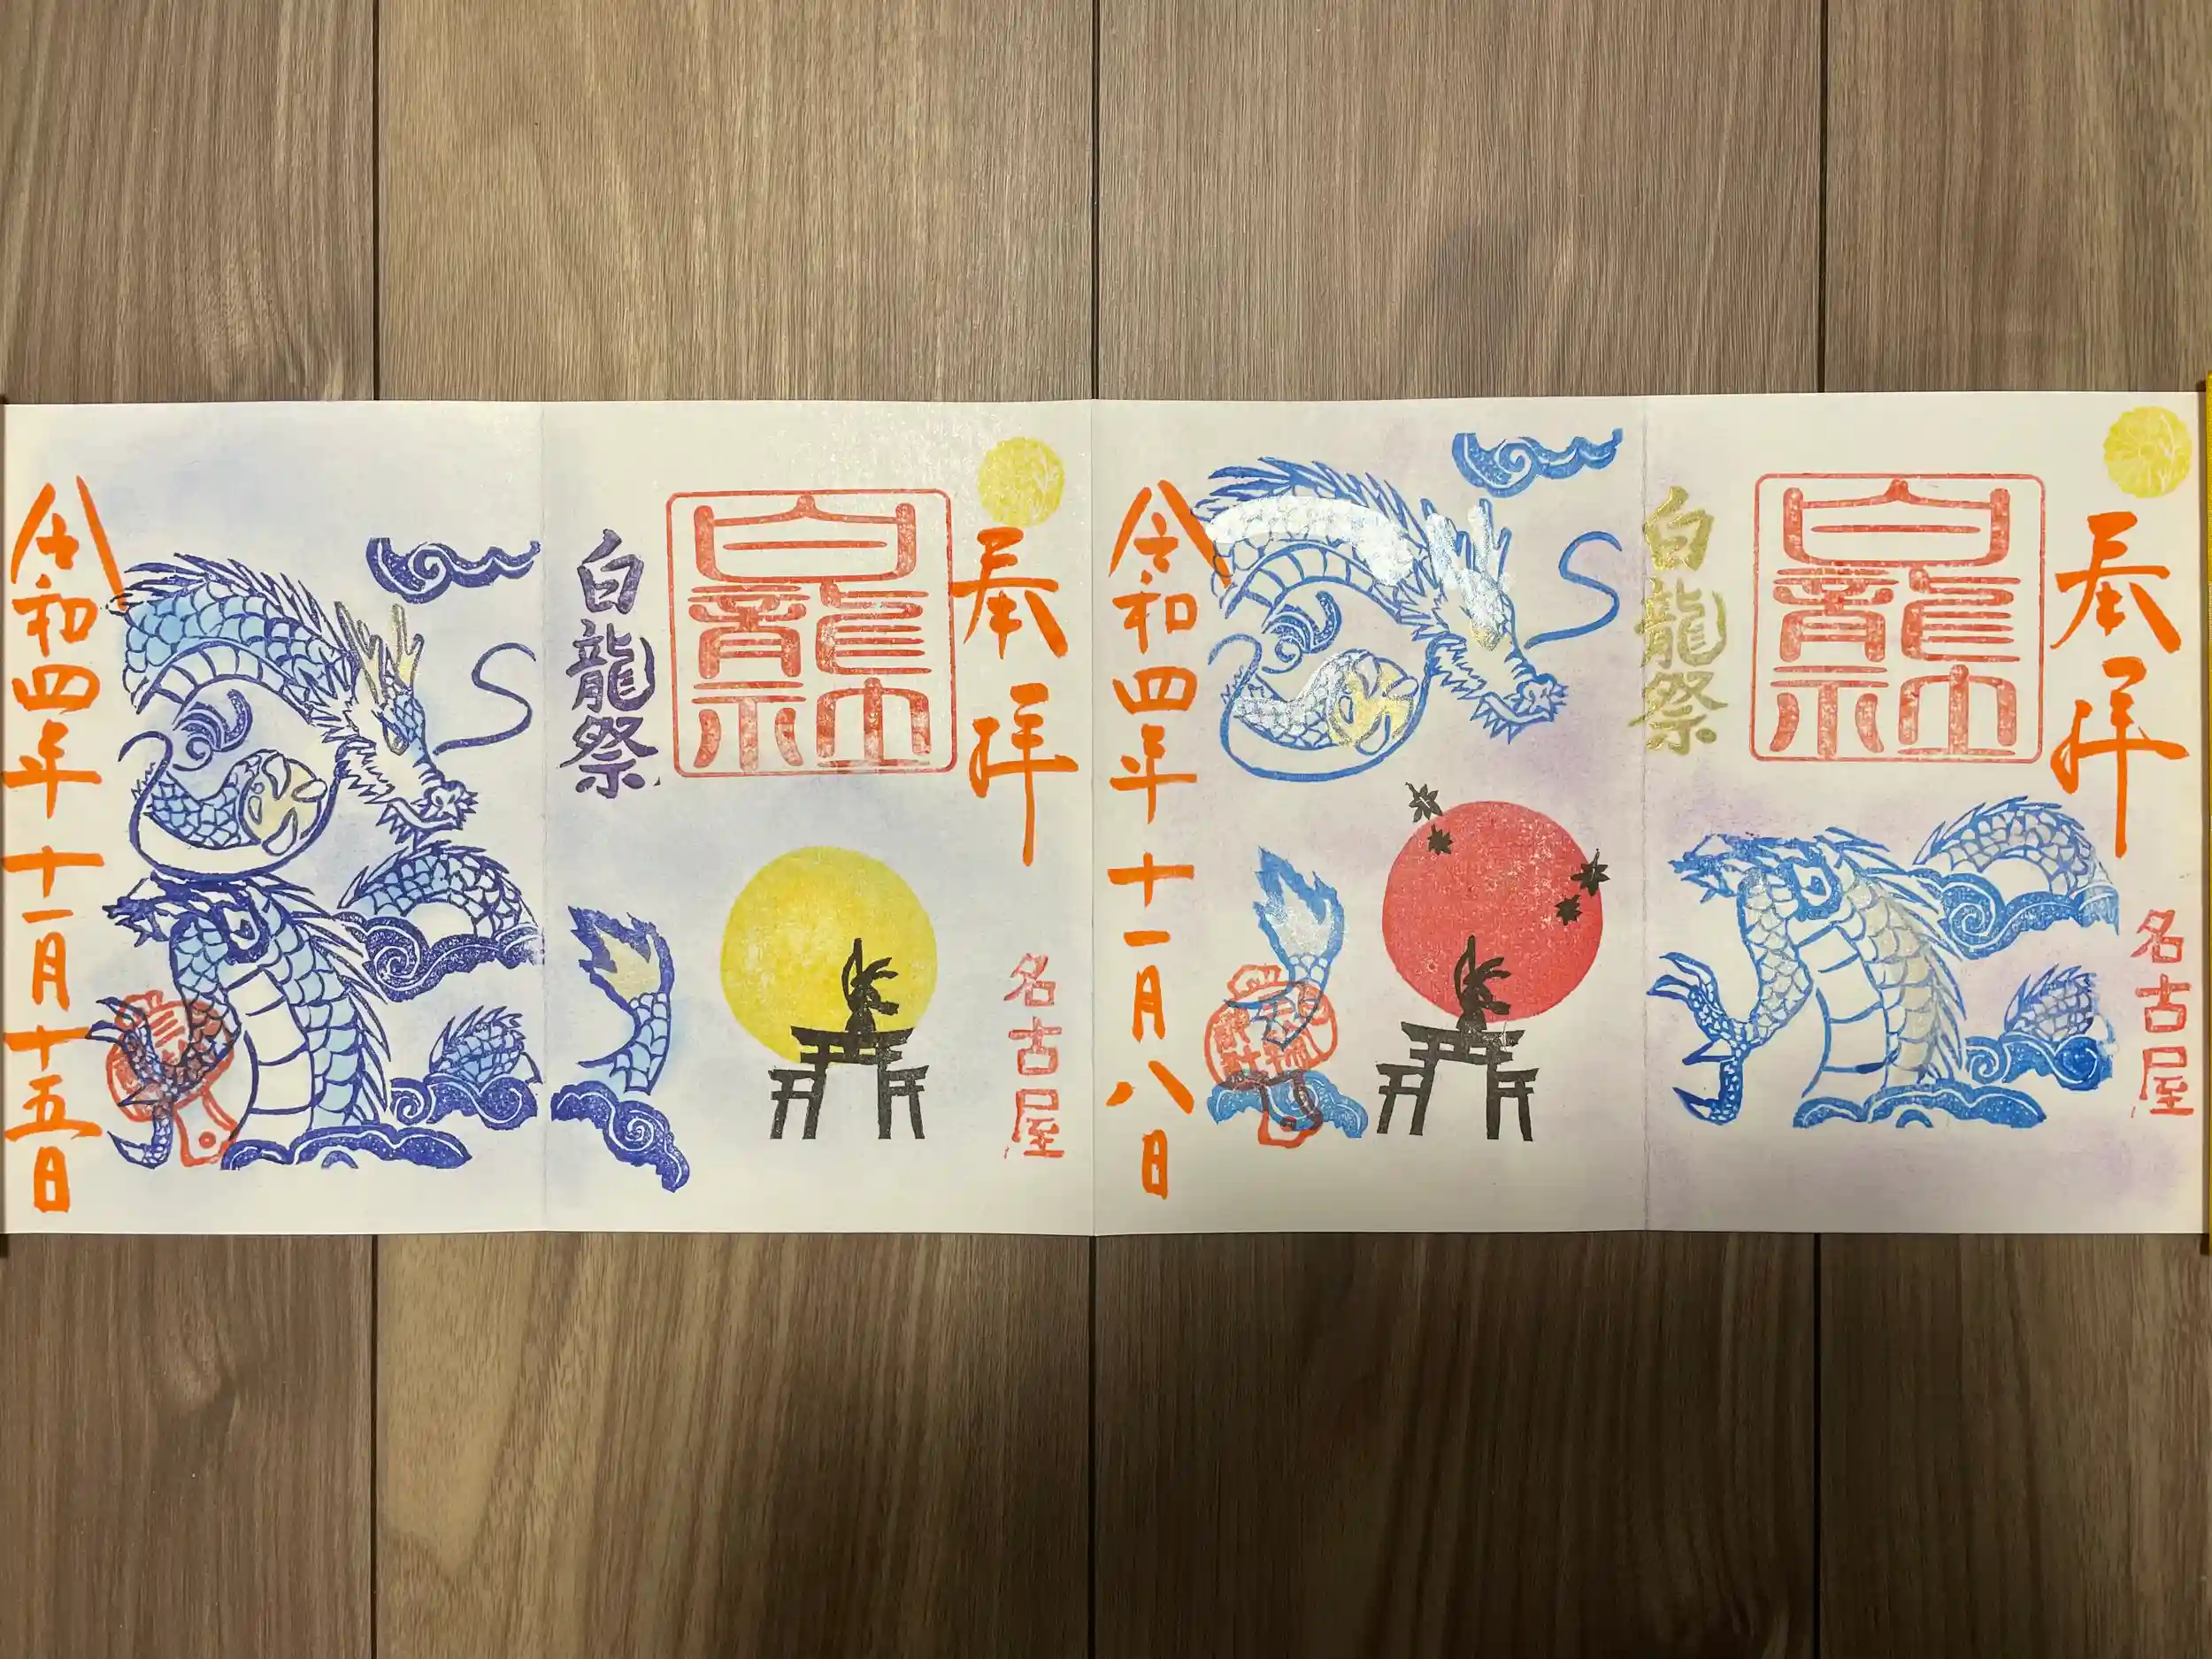 奉拝
白龍神社
白龍祭
名古屋
令和四年十一月八日
奉拝
白龍神社
白龍祭
名古屋
令和四年十一月十五日